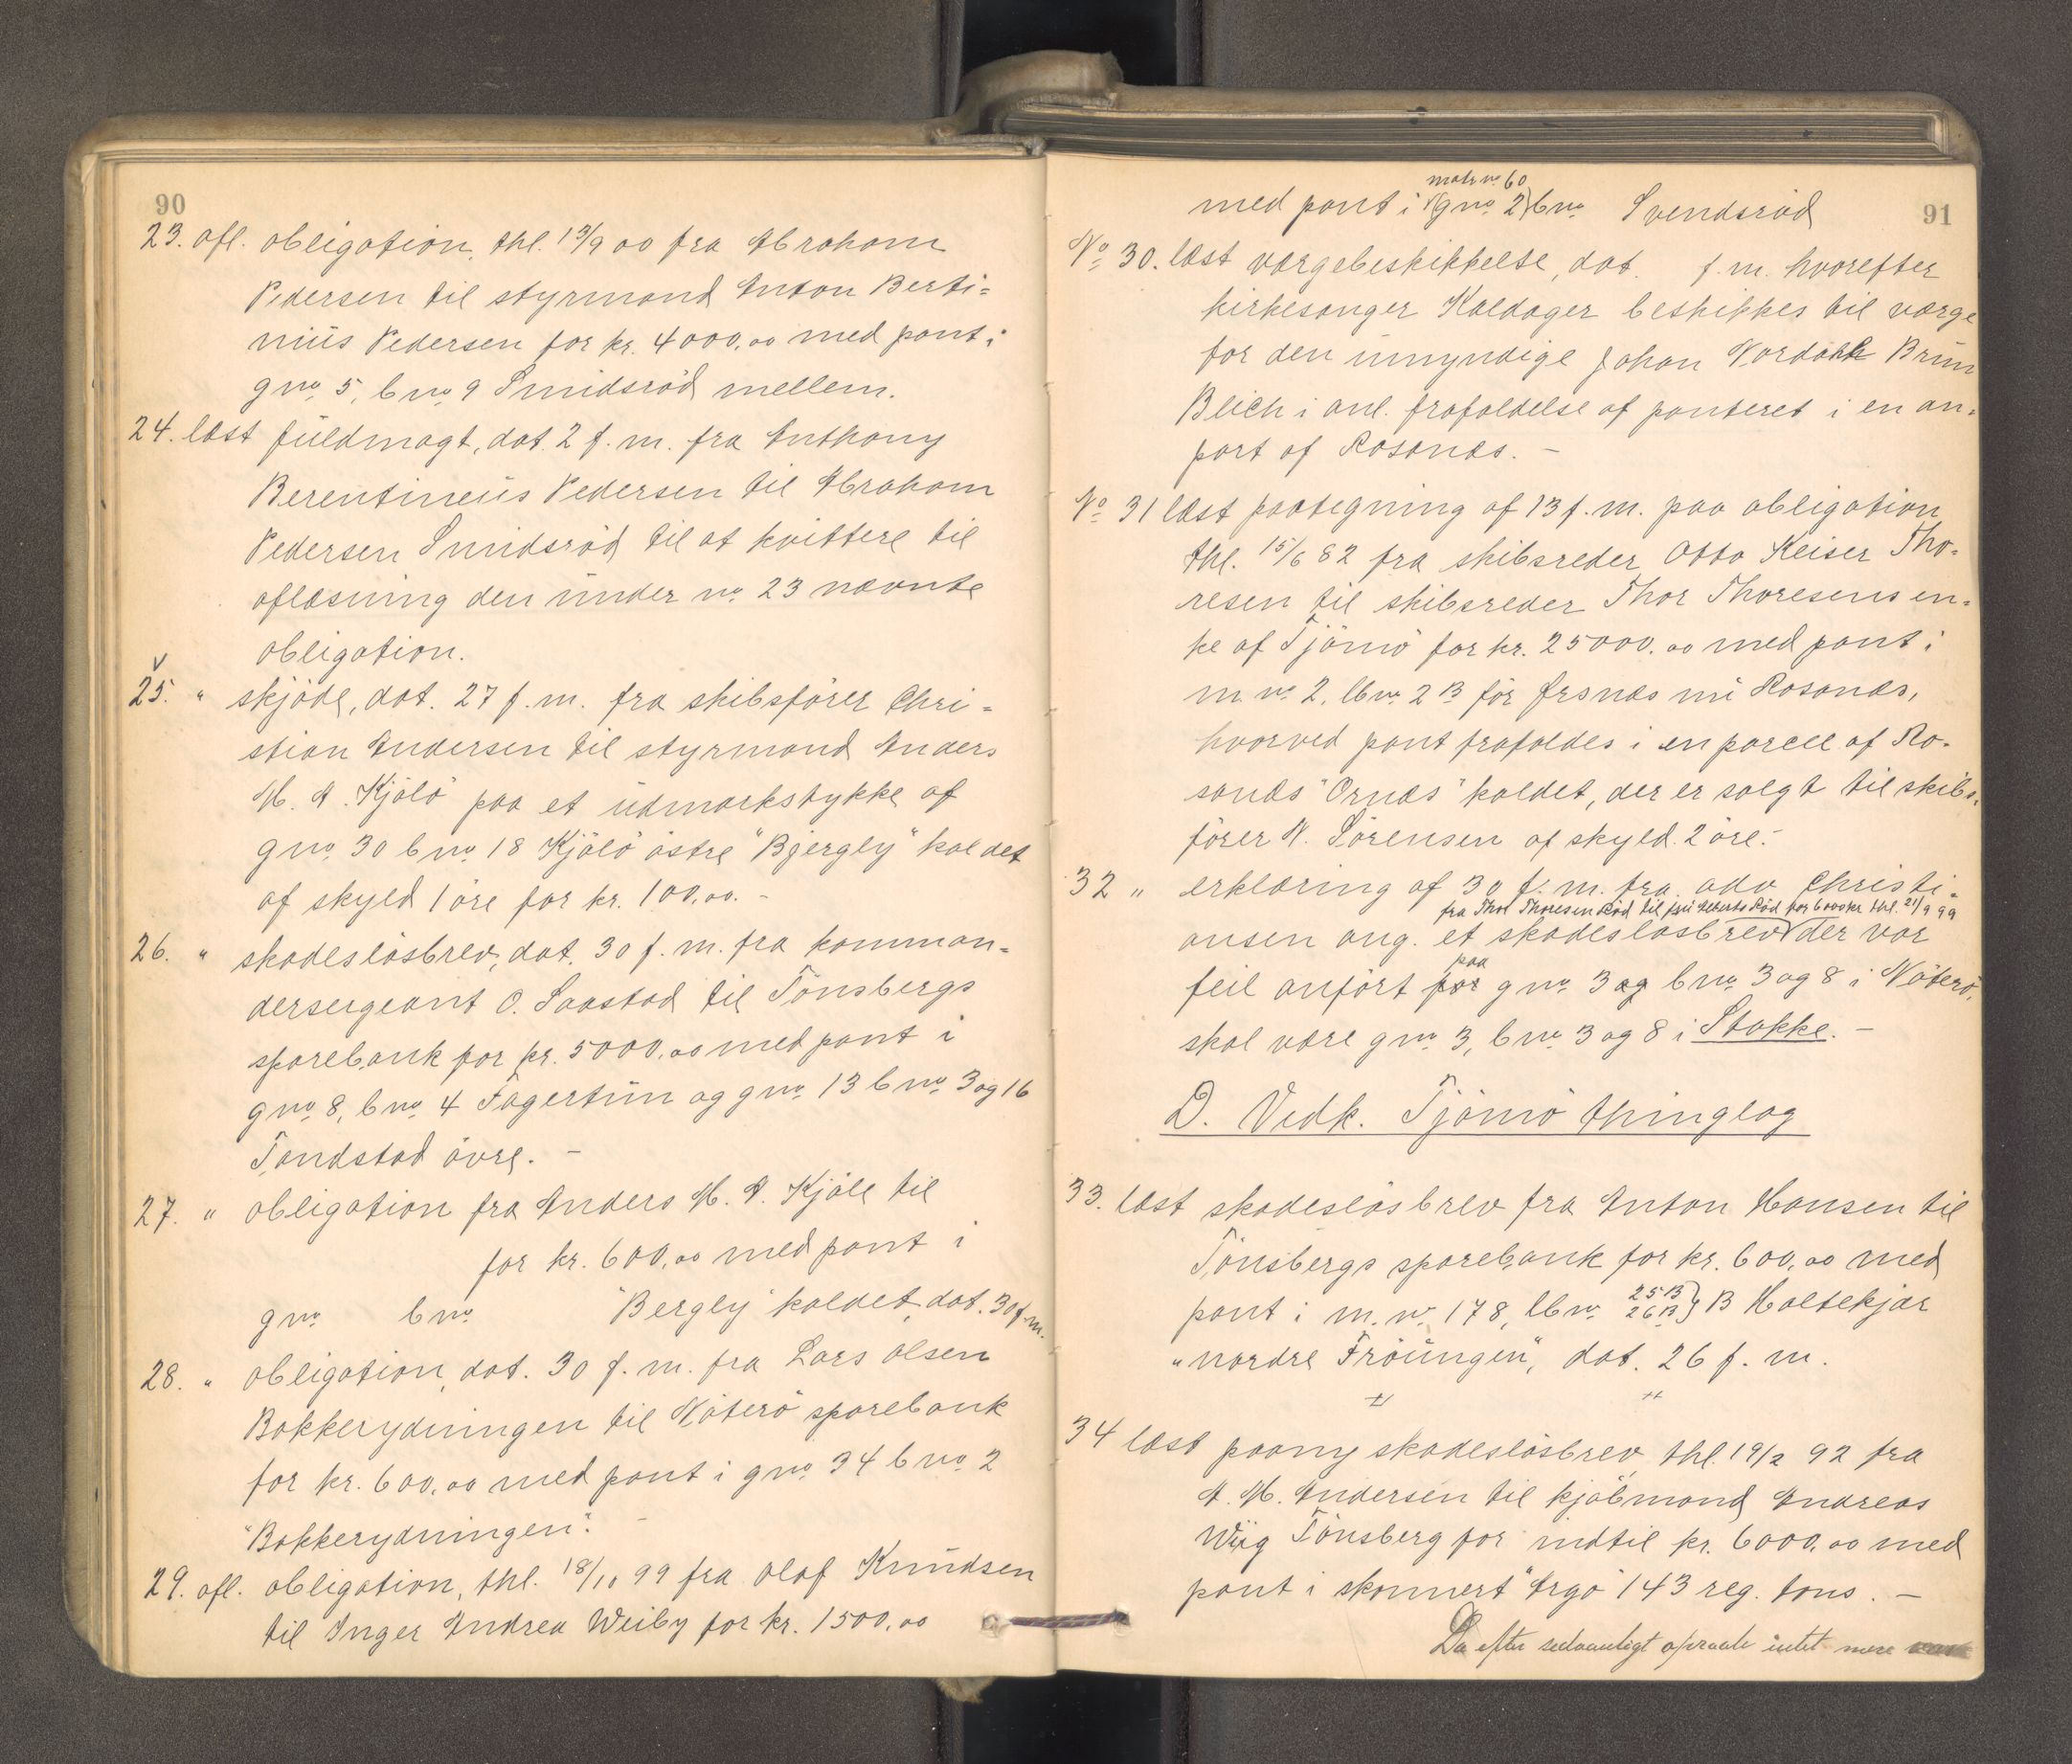 90
23. afl. obligation, thl. 13/9 00 fra Abraham
Pedersen til styrmand Anton Berti=
nius Pedersen for kr. 4000,00 med pant i
gno. 5, bno. 9 Smidsröd mellem.
24. læst fuldmagt, dat. 2 f. m. fra Anthony
Berentineus Pedersen til Abraham
Pedersen Smidsröd til at kvittere til
aflæsning den under no. 23 nævnte
obligation.
25. " skjöde, dat. 27 f. m. fra skibsförer Chri=
stian Andersen til styrmand Anders
M. A. Kjölö paa et udmarkstykke af
gno. 30 bno. 18 Kjölö östre "Bjergly" kaldet
af skyld 1 öre for kr. 100,00. -
26. " skadeslösbrev, dat. 30 f. m. fra komman=
dersergeant O. Saastad til Tönsbergs
sparebank for kr. 5000,00 med pant i
gno. 8, bno. 4 Fagertun og gno. 13 bno. 3 og 16
Tandstad övre. -
27. " obligation fra Anders M. A. Kjöle til
for kr. 600,00 med pant i
gno. bno. "Bergly" kaldet, dat. 30 f. m.
28. " obligation, dat. 30 f. m. fra Lars Olsen
Bakkerydningen til Nöterö sparebank
for kr. 600,00 med pant i gno. 34 bno. 2
"Bakkerydningen". -
29. afl. obligation, thl. 18/10 99 fra Olaf Knudsen
til Inger Andrea Weiby for kr. 1500,00
91
matr no. 60
med pant i (gno. 2) bno. Svendsröd
No. 30. læst værgebeskikkelse, dat. f. m. hvorefter
kirkesanger Kaldager beskikkes til værge
for den umyndige Johan Nordahl Brun
Bleich i anl. frafaldelse af panteret i en an=
part af Rosanæs. -
No. 31 læst paategning af 13 f. m. paa obligation
thl. 15/6 82 fra skibsreder Otto Keiser Tho=
resen til skibsreder Thor Thoresens en=
ke af Tjömö for kr. 25000,00 med pant i
m. no. 2, lbno. 2 B för Årsnæs nu Rosanæs,
hvorved pant frafaldes i en parcel af Ro=
sanæs "Ornæs" kaldet, der er solgt til skibs=
förer N. Sörensen af skyld 2 öre. -
32 " erklæring af 30 f. m. fra adv Christi=
fra Thor Thoresen Röd til Alberts Röd for 6000 kr thl. 21/9 99
ansen ang. et skadeslösbrev der var
paa
feil anfört for gno. 3 og bno. 3 og 8 i Nöterö,
skal være gno. 3, bno. 3 og 8 i Stokke. -
D. Vedk. Tjömö thinglag
33. læst skadeslösbrev fra Anton Hansen til
Tönsbergs sparebank for kr. 600,00 med
pant i m. no. 178, lbno. 25 B 26 B } B Holtekjær
"nordre Fröungen", dat. 26 f. m.
34 læst paany skadeslösbrev thl. 19/2 92 fra
A. M. Andersen til kjöbmand Andreas
Wiig Tönsberg for indtil kr. 6000,00 med
pant i skonnert "Argo" 143 reg. tons. -
Da efter sedvanligt opraab intet mere